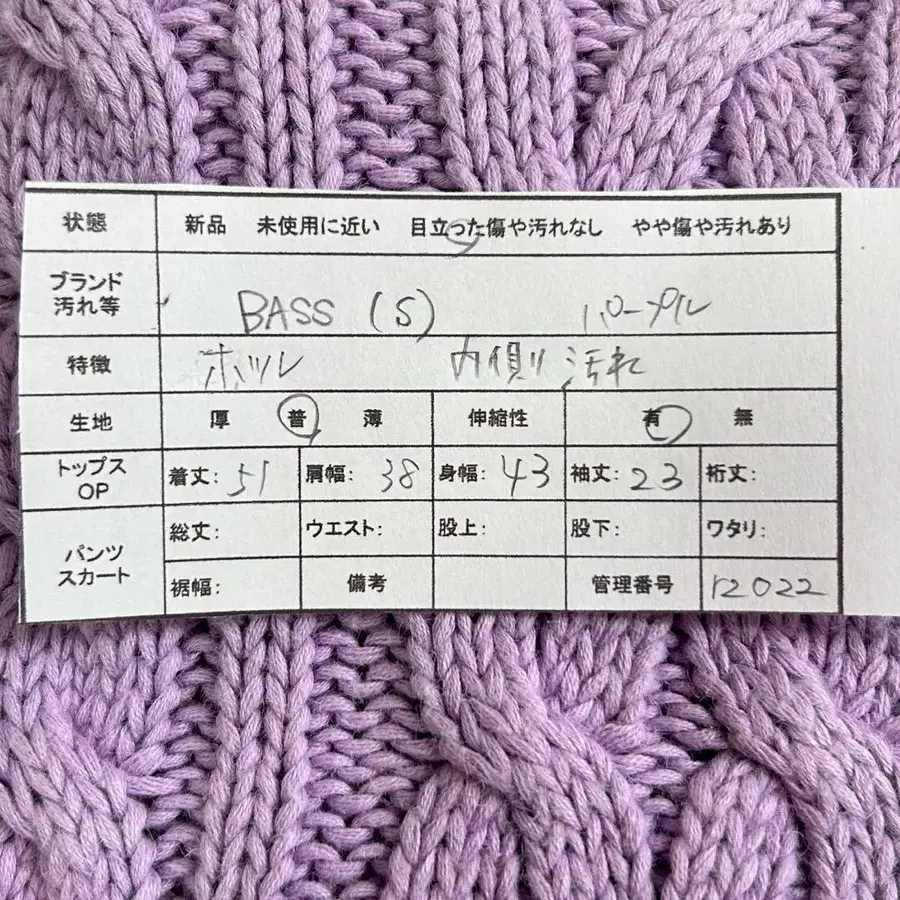 状態 新品 未使用に近い 目立った傷や汚れなし やや傷や汚れあり
ブランド
汚れ等
BASS (S) パープル
特徴 ホツレ 内側 汚れ
生地 厚 普 薄 伸縮性 有 無
トップス
OP
着丈: 51 肩幅: 38 身幅: 43 袖丈: 23 裄丈:
パンツ
スカート
総丈: ウエスト: 股上: 股下: ワタリ:
裾幅: 備考 管理番号 r2022